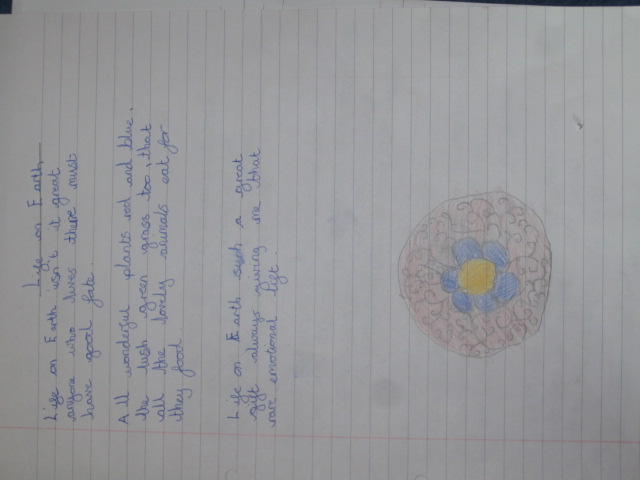 Life on Earth
Life on Earth isn't it great
anyone who lives there must
have good fate.
All wonderful plants red and blue,
the lush green grass too, that
all the lovely animals eat for
they food.
Life on Earth such a great
gift always giving me that
rare emotional lift.